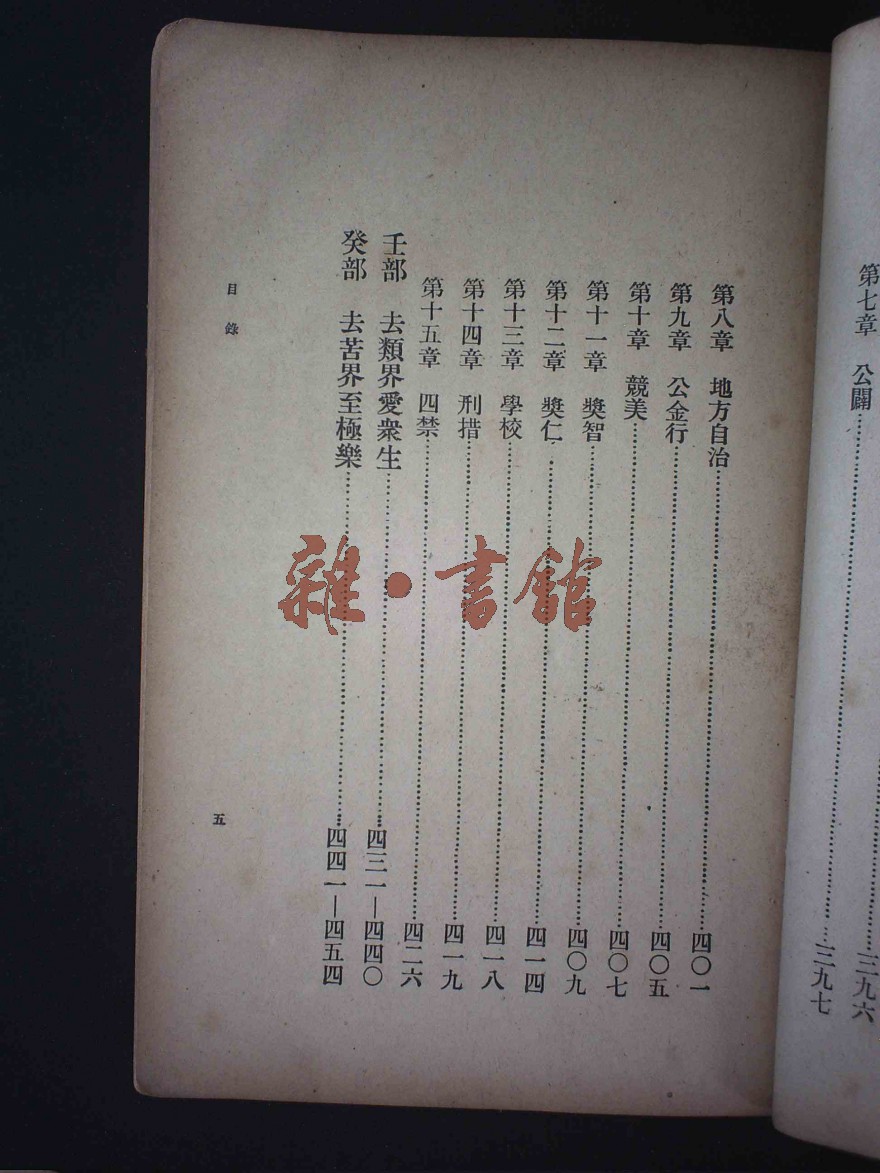 三九六
第七章 公闢……三九七
第八章 地方自治……四〇一
第九章 公金行……四〇五
第十章 競美……四〇七
第十一章 獎智……四〇九
第十二章 獎仁……四一四
第十三章 學校……四一八
第十四章 刑措……四一九
第十五章 四禁……四二六
壬部 去類界愛衆生……四三一—四四〇
癸部 去苦界至極樂……四四一—四五四
目錄
五
雜·書館